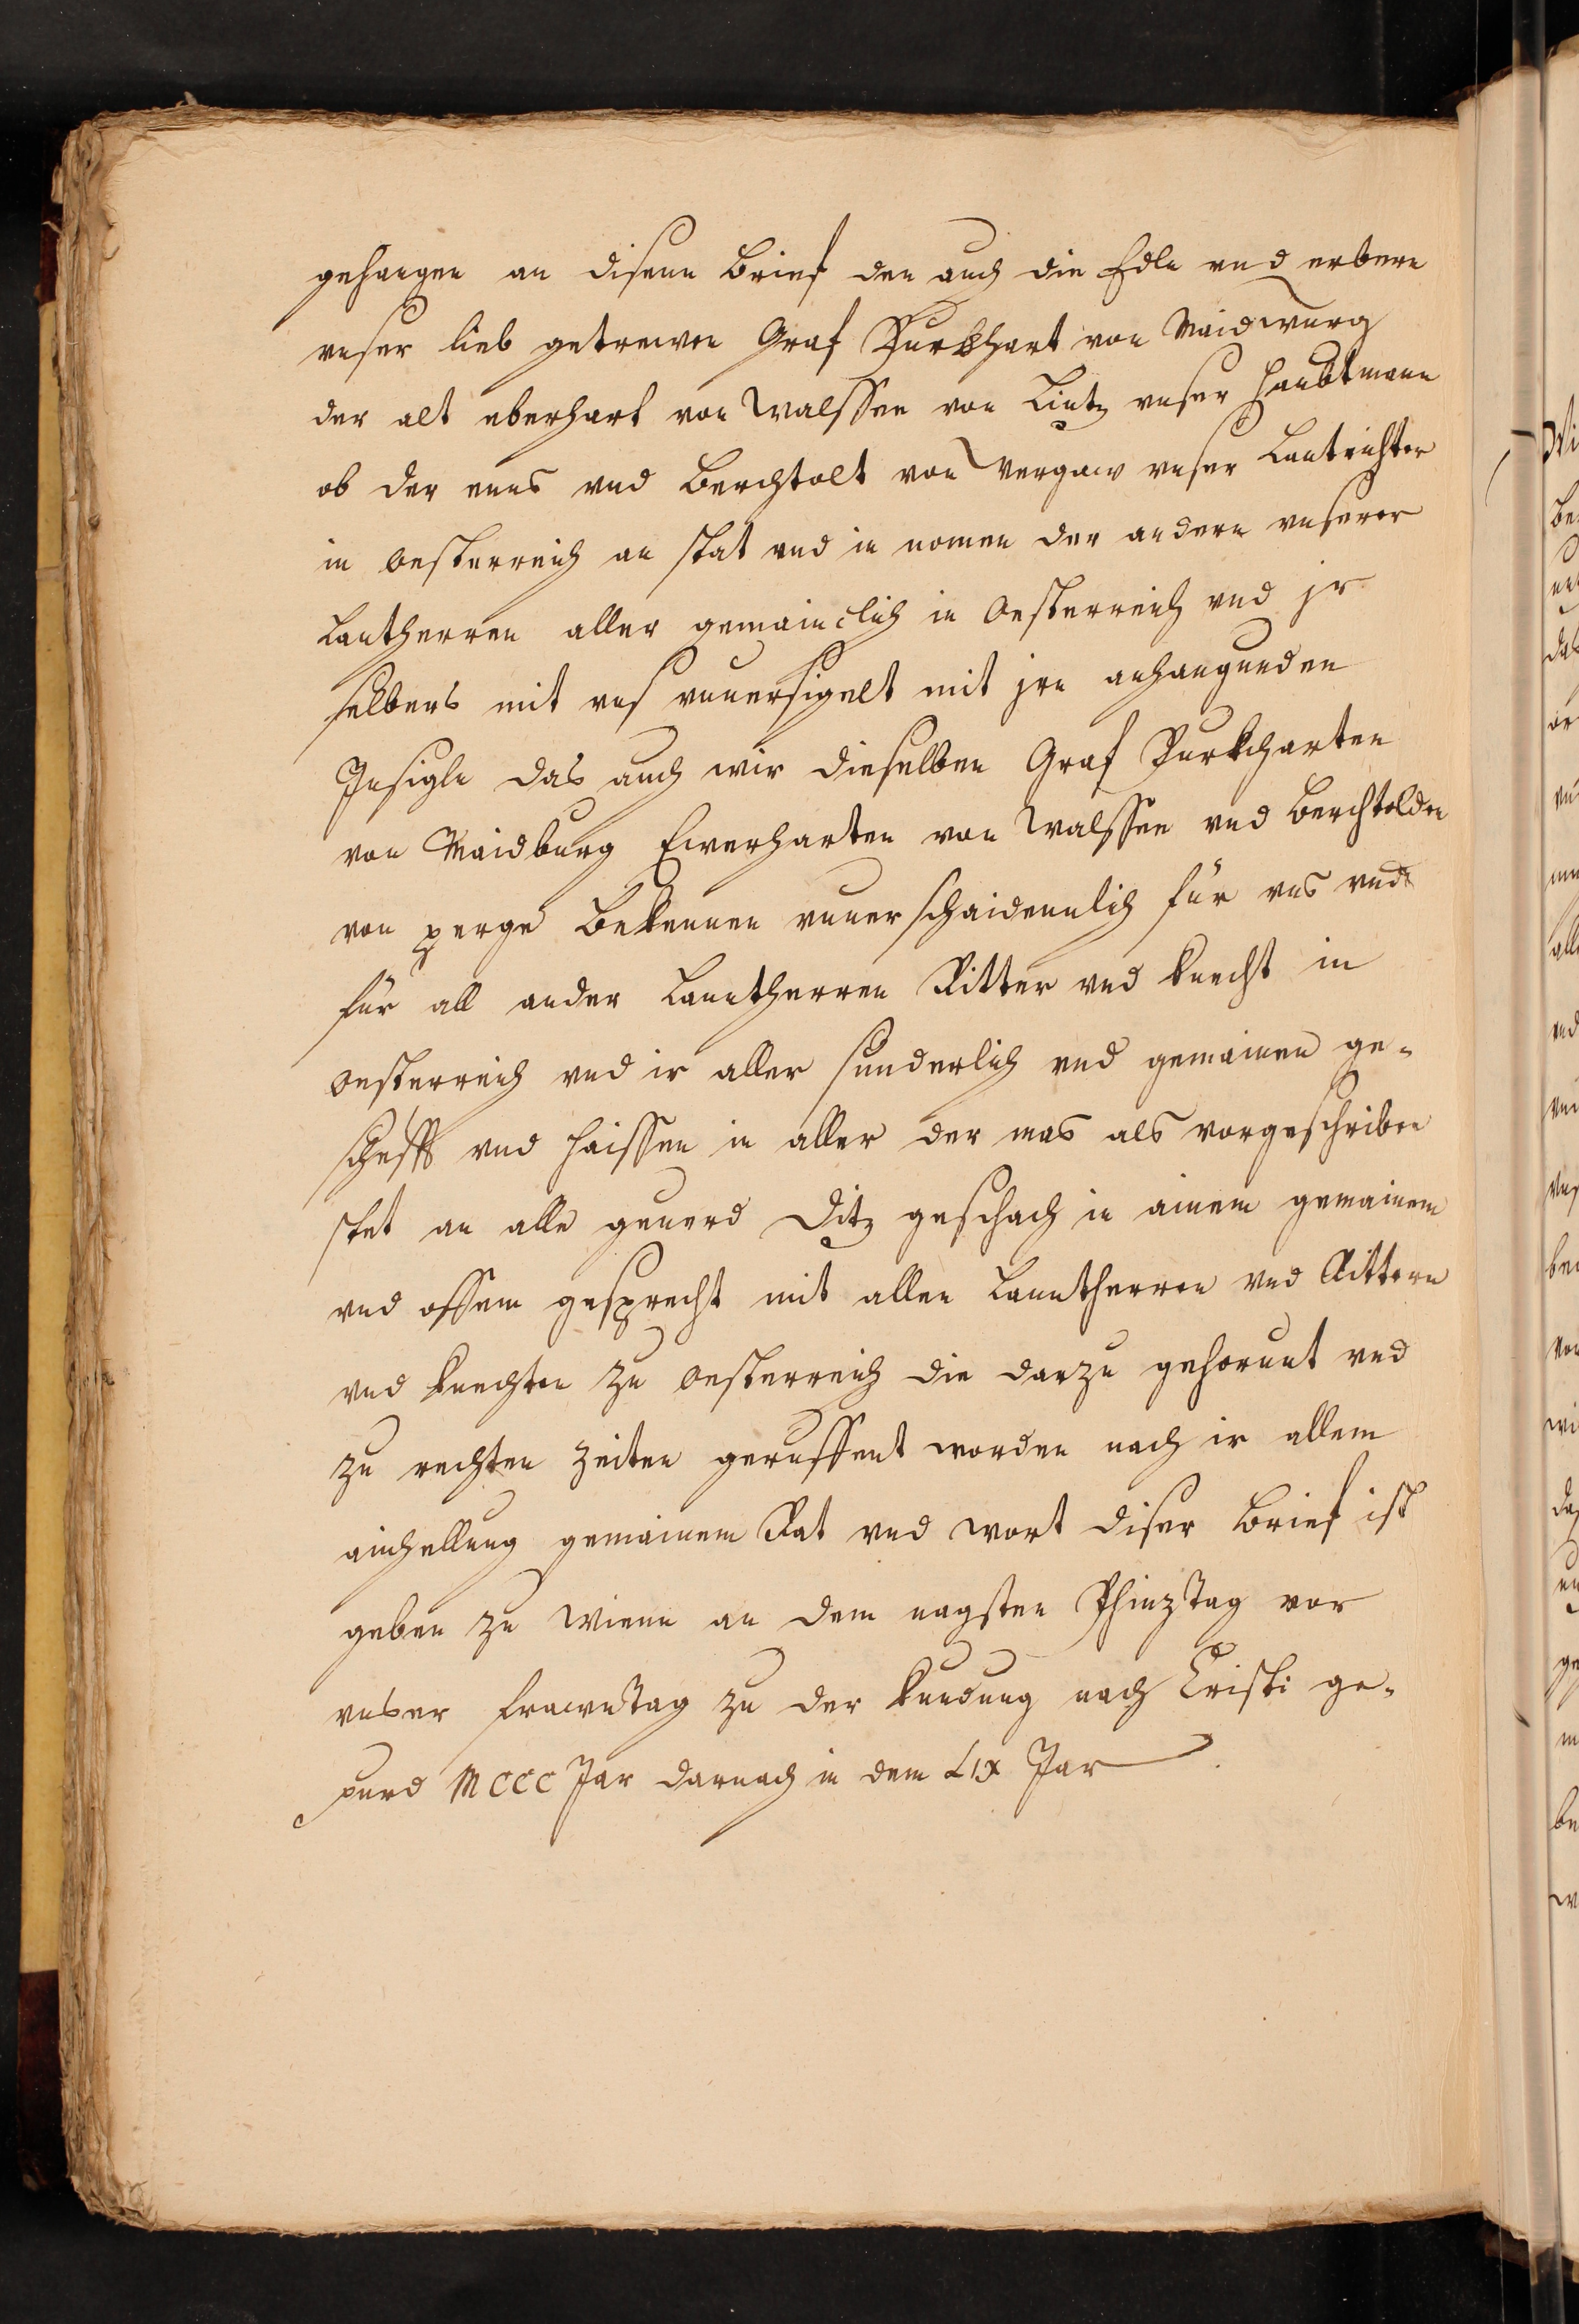 gehangen an disenn Brief den auch die Edln vnd erbern
vnser lieb getrewen Graf Purkhart von Maidwurg
der alt eberhart von Walssee von Lintz vnser Haubtmann
ob der enns vnd Berchtolt von Vergaw vnser Lantrichter
in Oesterreich an stat vnd in nomen der andern vnserer
Lantherren aller gemainclich in Oesterreich vnd jr
selbers mit vns vnuersigelt mit jrn anhangunden
Insigln das auch wir dieselben Graf Purkcharten
von Maidburg Ewerharten von Walssee vnd Berchtolden
von perge Bekennen vnuerschaidennlich für vns vnd
für all ander Lanntherren Ritter vnd knecht in
Oesterreich vnd ir aller sunderlich vnd gemainen ge-
schefft vnd haissen in aller der mas als vorgeschriben
stet an alle geuerd Ditz geschach in ainem gemainem
vnd offem gesprecht mit allen Lanntherren vnd Rittern
vnd knechten zu Oesterreich die darzu gehorunt vnd
zu rechten zeiten geruffent worden nach ir allem
ainhellung gemainem Rat vnd wort diser Brief ist
geben zu Wienn an dem nagsten Phinztag vor
vnser frawntag zu der kundung nach Cristi ge-
purd MCCC Jar darnach in dem LIX Jar